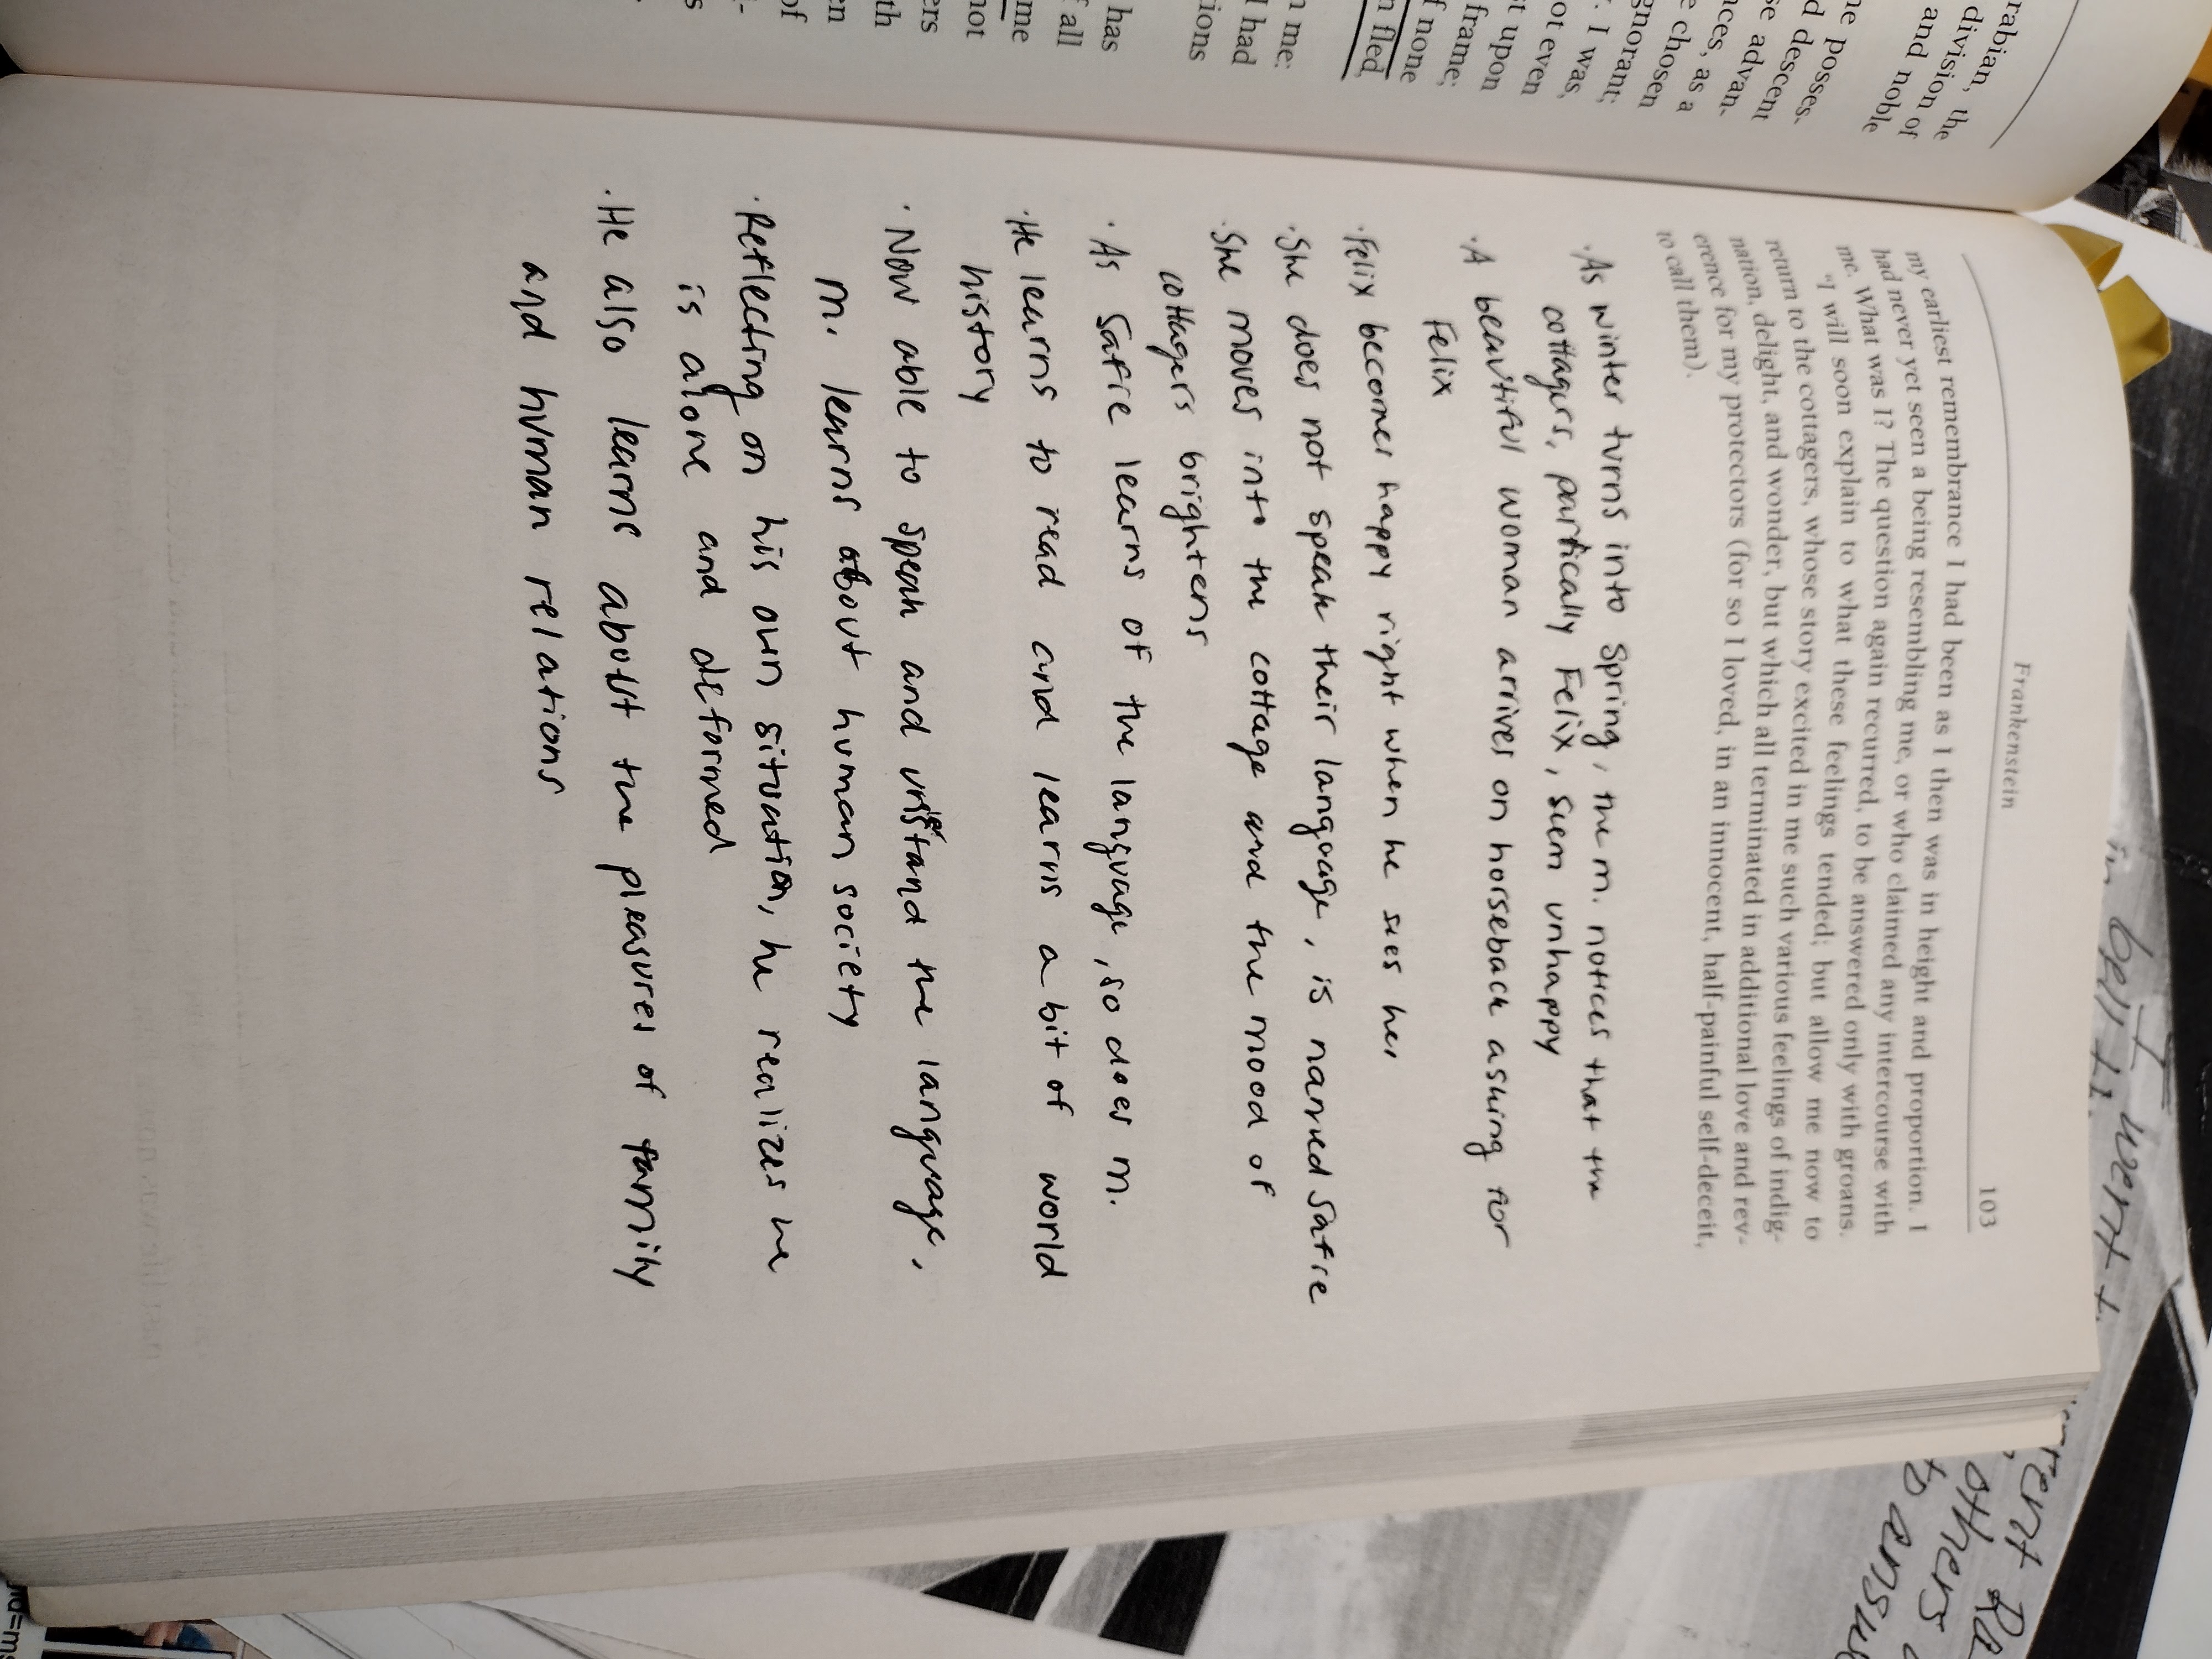 rabian, the
division of
and noble
he posses-
d descent
se advan-
nces, as a
e chosen
gnorant;
. I was,
ot even
it upon
frame;
f none
n fled,
n me:
l had
tions
has
f all
me
not
ers
th
en
of
Frankenstein 103
my earliest remembrance I had been as I then was in height and proportion. I
had never yet seen a being resembling me, or who claimed any intercourse with
me. What was I? The question again recurred, to be answered only with groans.
"I will soon explain to what these feelings tended; but allow me now to
return to the cottagers, whose story excited in me such various feelings of indig-
nation, delight, and wonder, but which all terminated in additional love and rev-
erence for my protectors (for so I loved, in an innocent, half-painful self-deceit,
to call them).
·As winter turns into spring, the m. notices that the
cottagers, partically Felix, seem unhappy
·A beautiful woman arrives on horseback asking for
Felix
·Felix becomes happy right when he sees her
·She does not speak their language, is named Safie
·She moves into the cottage and the mood of
cottagers brightens
·As Safie learns of the language, so does m.
·He learns to read and learns a bit of world
history
·Now able to speak and understand the language,
m. learns about human society
·Reflecting on his own situation, he realizes he
is alone and deformed
·He also learns about the pleasures of family
and human relations
others
to